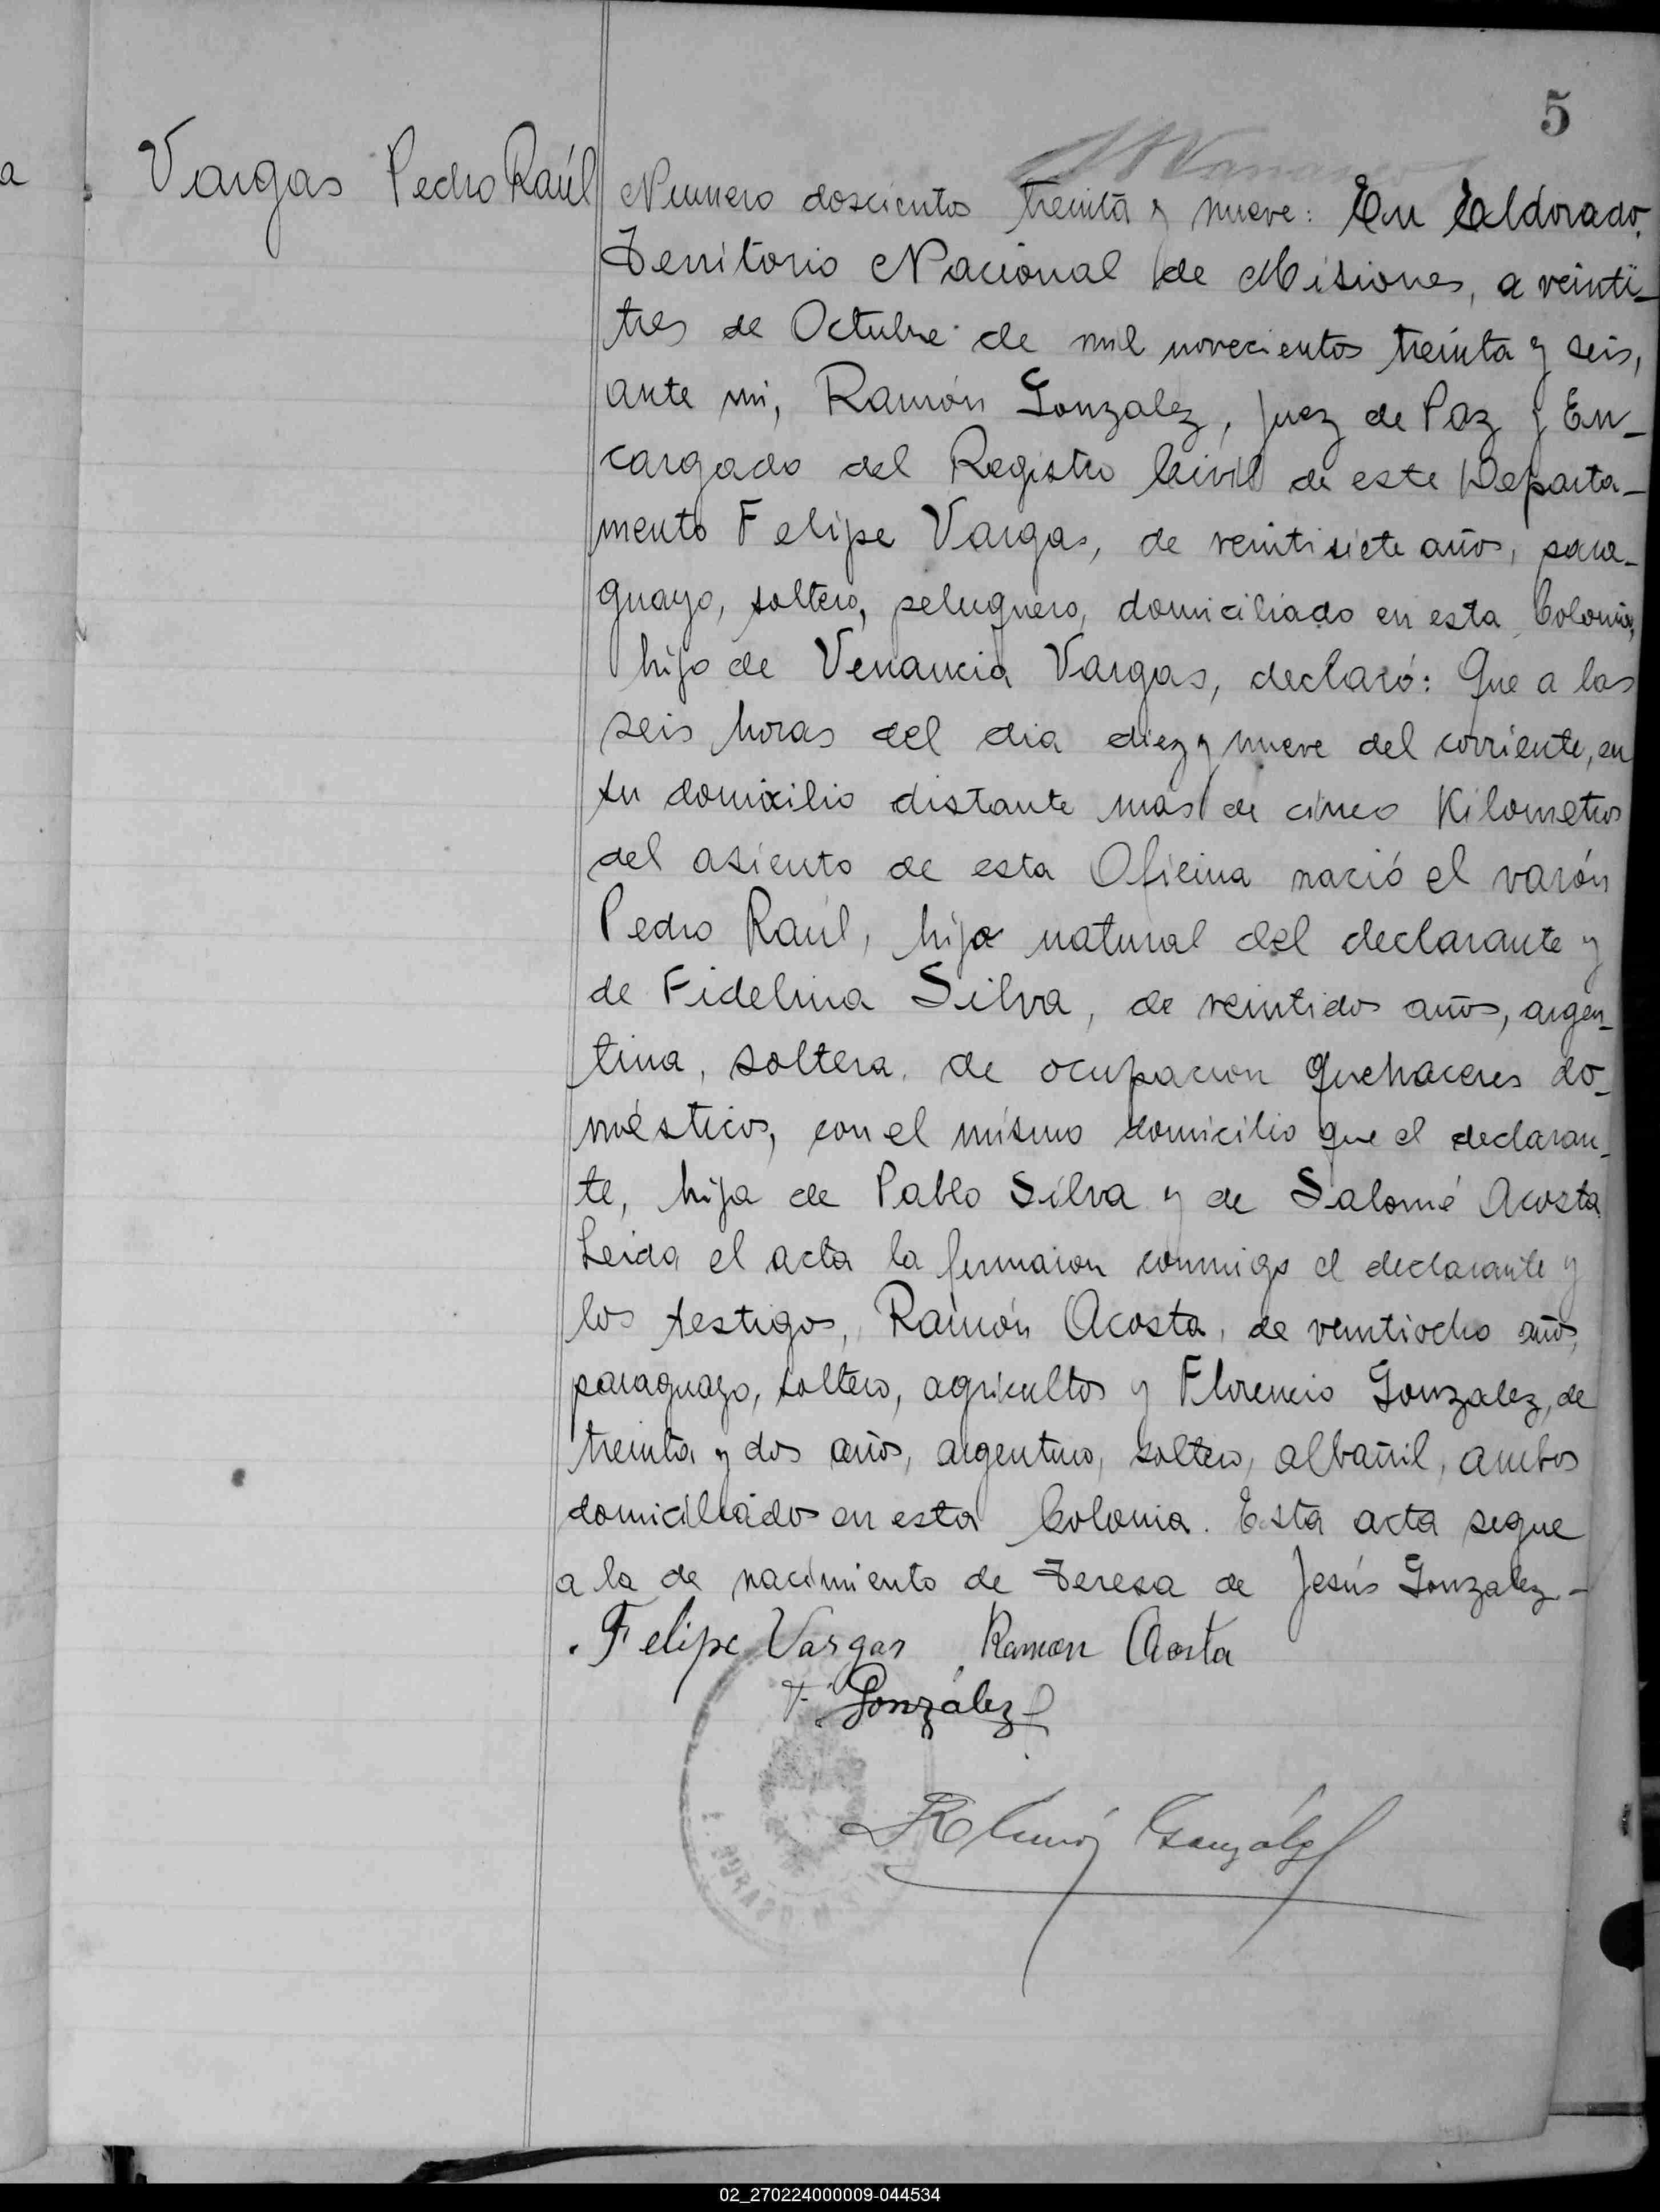 5
Vargas Pedro Raúl
Numero doscientos treinta y nueve: En Eldorado,
Territorio Nacional de Misiones, a veinti-
tres de Octubre de mil novecientos treinta y seis,
ante mi, Ramón Gonzalez, Juez de Paz y En-
cargado del Registro Civil de este Departa-
mento Felipe Vargas, de veintisiete años, para-
guayo, soltero, peluquero, domiciliado en esta Colonia,
hijo de Venancia Vargas, declaró: Que a las
seis horas del dia diez y nueve del corriente, en
su domicilio distante mas de cinco Kilometros
del asiento de esta Oficina nació el varón
Pedro Raúl, hijo natural del declarante y
de Fidelina Silva, de veintidos años, argen-
tina, soltera, de ocupacion quehaceres do-
mésticos, con el mismo domicilio que el declaran-
te, hija de Pablo Silva y de Salomé Acosta
Leida el acta la firmaron conmigo el declarante y
los testigos, Ramón Acosta, de veintiocho años,
paraguayo, soltero, agricultor y Florencio Gonzalez, de
treinta y dos años, argentino, soltero, albañil, ambos
domiciliados en esta Colonia. Esta acta segue
a la de nacimiento de Teresa de Jesús Gonzalez-
Felipe Vargas Ramon Acosta
F. González
Ramón González
02_270224000009-044534